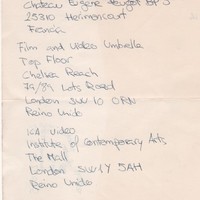 Chateau Eugene Peugeot BP 5
25310 Herimoncourt
Francia
Film and Video Umbrella
Top Floor
Chelsea Reach
79/89 Lots Road
London SW10 0RN
Reino Unido
ICA video
Institute of Contemporary Arts
The Mall
London SW1Y 5AH
Reino Unido